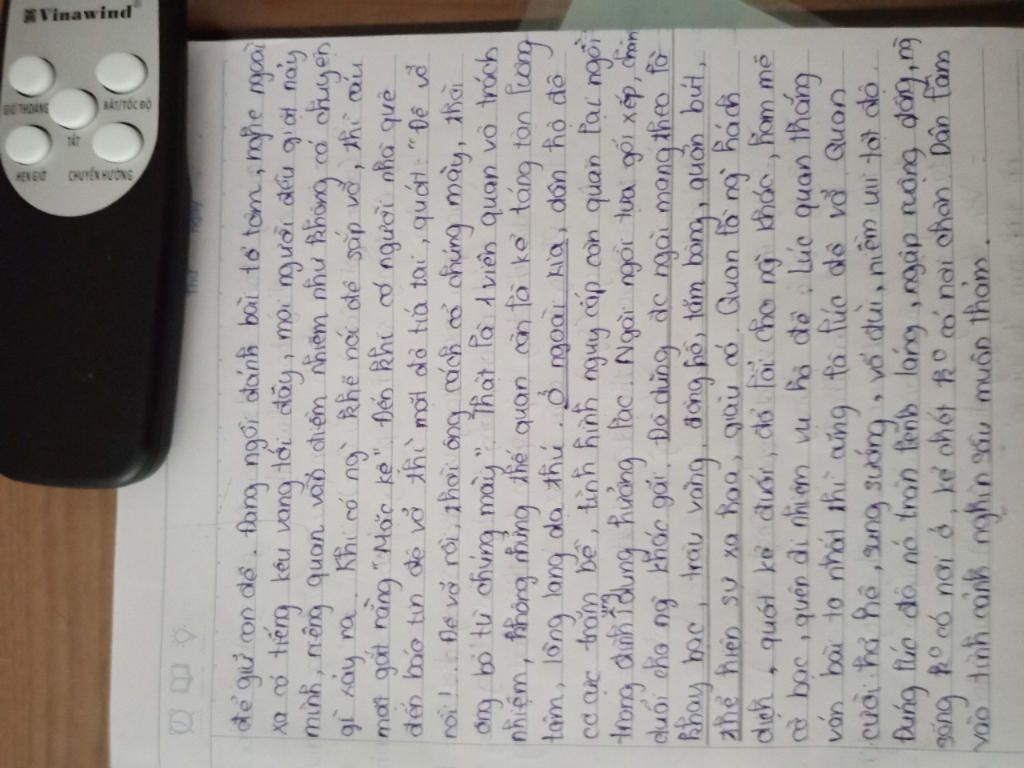 Vinawind
GIÓ THOẢNG
BẬT/TỐC ĐỘ
TẮT
HẸN GIỜ
CHUYỂN HƯỚNG
Thứ
Ngày
để giữ con đê. Đang ngồi đánh bài tổ tôm, nghe ngoài
xa có tiếng kêu vang tới dậy, mọi người đều giật nảy
mình, riêng quan vẫn điềm nhiêm như không có chuyện
gì xảy ra. Khi có ng khẽ nói đê sắp vỡ, thì cáu
mắt gắt rằng "Mặc kệ". Đến khi có người nhà quê
đến báo tin đê vỡ thì mặt đỏ tía tai, quát: "Đê vỡ
rồi! Đê vỡ rồi, thời ông cách cổ chúng mày, thời
ông bỏ tù chúng mày". Thật là 1 viên quan vô trách
nhiệm, không những thế quan còn là kẻ táng tận lương
tâm, lòng lang dạ thú. Ở ngoài kia, dân hộ đê
cơ cực trăm bề, tình hình nguy cấp còn quan lại ngồi
trong đình ung dung hưởng lạc. Ngài ngồi tựa gối xếp, chân
duỗi cho ng khác gãi. Đồ dùng đc ngài mang theo là
khay bạc, tráp vàng, đồng hồ, tăm bông, quản bút,
thể hiện sự xa hoa, giàu có. Quan là ng hách
dịch, quát kẻ dưới, đổ lỗi cho ng khác, ham mê
cờ bạc, quên đi nhiệm vụ hộ đê. Lúc quan thắng
ván bài to nhất thì cũng là lúc đê vỡ. Quan
cười hả hê, sung sướng, vỗ đùi, niềm vui tột độ.
Đúng lúc đó nó tràn lênh láng, ngập ruộng đồng, ng
sống ko có nơi ở, kẻ chết ko có nơi chôn. Dân lâm
vào tình cảnh nghìn sầu muôn thảm.